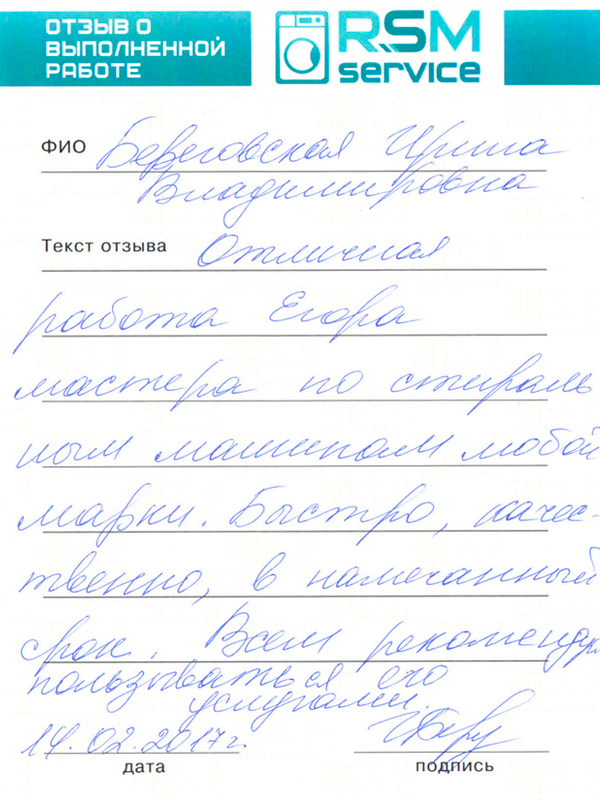 ОТЗЫВ О
ВЫПОЛНЕННОЙ
РАБОТЕ
RSM
service
ФИО Береговская Ирина
Владимировна
Текст отзыва Отличная
работа Егора
мастера по стираль
ным машинам любой
марки. Быстро, качес-
твенно, в намечанный
срок. Всем рекоменду
пользываться его
услугами.
14.02.2017г.
дата
подпись